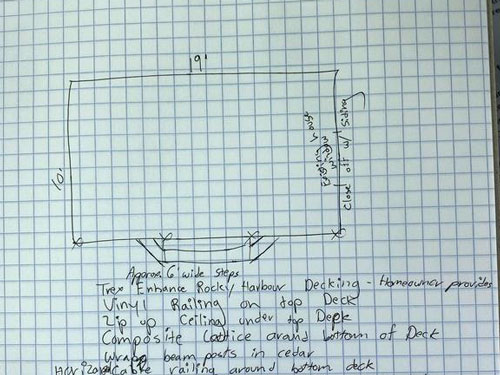 19'
10'
Close off w/ Siding
Approx 6' wide steps
Trex Enhance Rocky Harbour Decking - Homeowner provides
Vinyl Railing on top Deck
Zip up Ceiling under top Deck
Composite Lattice around bottom of Deck
Wrapp beam posts in cedar
Horizontal Cable railing around bottom deck